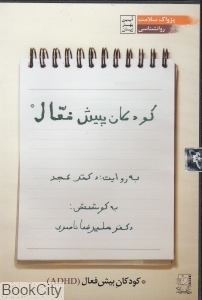 پژواک سلامت
روانشناسی
کودکان بیش فعّال
به روایت: دکتر مجد
به کوشش:
دکتر علیرضا ناصری
کودکان بیش فعال (ADHD)
BookCity